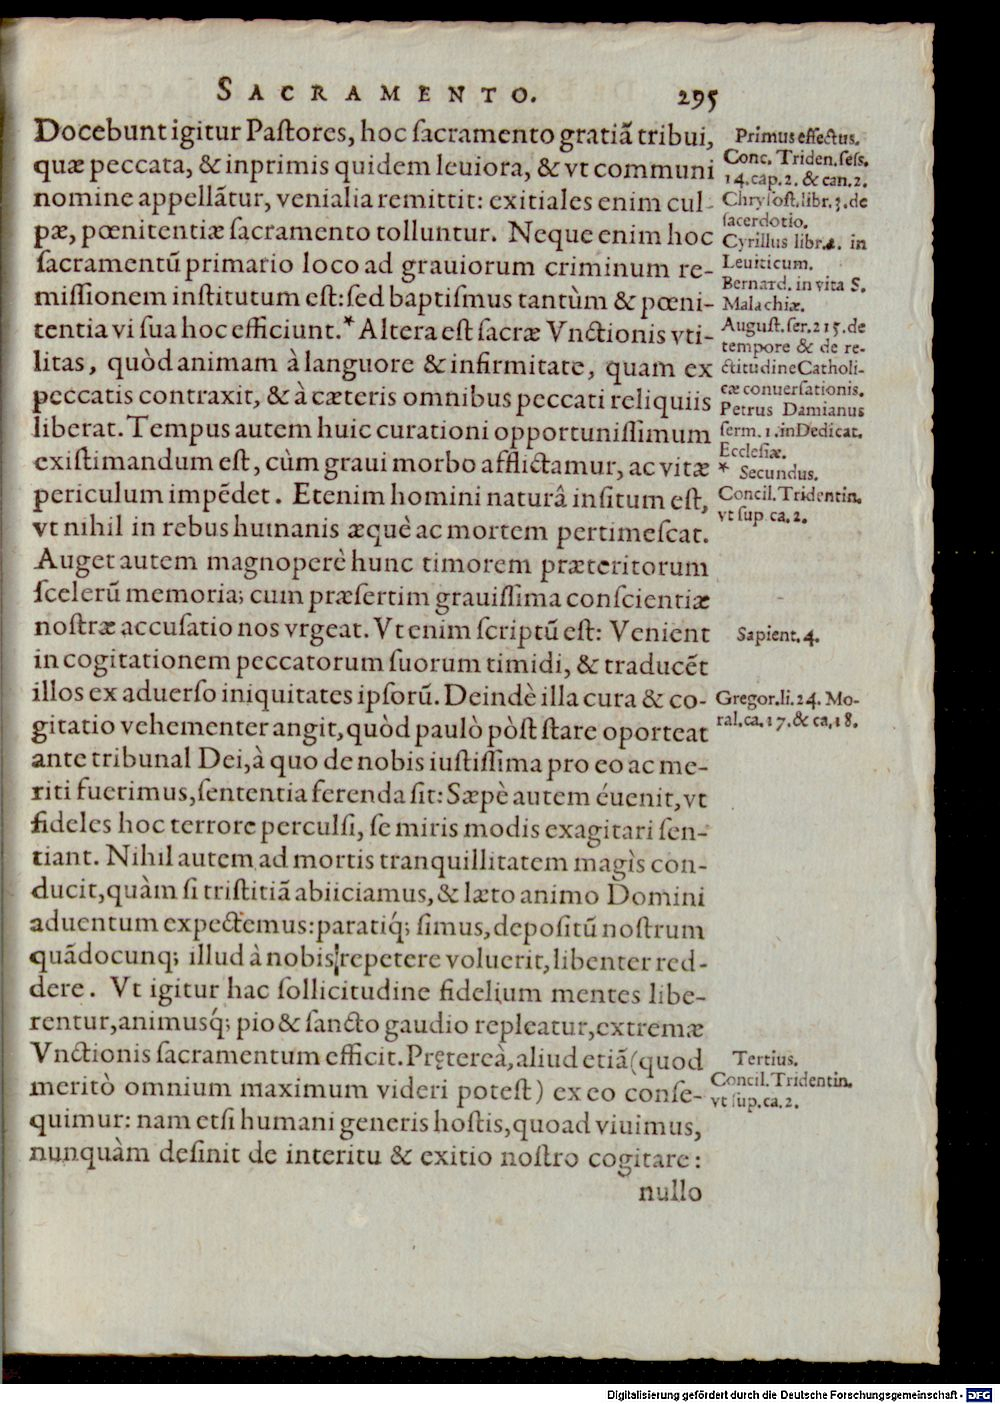 SACRAMENTO. 295
Docebunt igitur Paſtores, hoc ſacramento gratiā tribui,
quæ peccata, & inprimis quidem leuiora, & vt communi
nomine appellātur, venialia remittit: exitiales enim cul-
pæ, pœnitentiæ ſacramento tolluntur. Neque enim hoc
ſacramentū primario loco ad grauiorum criminum re-
miſſionem inſtitutum eſt: ſed baptiſmus tantùm & pœni-
tentia vi ſua hoc efficiunt.* Altera eſt ſacræ Vnctionis vti-
litas, quòd animam à languore & infirmitate, quam ex
peccatis contraxit, & à cæteris omnibus peccati reliquiis
liberat. Tempus autem huic curationi opportuniſſimum
exiſtimandum eſt, cùm graui morbo afflictamur, ac vitæ
periculum impēdet. Etenim homini naturâ inſitum eſt,
vt nihil in rebus humanis æquè ac mortem pertimeſcat.
Auget autem magnoperè hunc timorem præteritorum
ſcelerū memoria; cum præſertim grauiſſima conſcientiæ
noſtræ accuſatio nos vrgeat. Vt enim ſcriptū eſt: Venient
in cogitationem peccatorum ſuorum timidi, & traducēt
illos ex aduerſo iniquitates ipſorū. Deindè illa cura & co-
gitatio vehementer angit, quòd paulò pòſt ſtare oporteat
ante tribunal Dei, à quo de nobis iuſtiſſima pro eo ac me-
riti fuerimus, ſententia ferenda ſit: Sæpè autem éuenit, vt
fideles hoc terrore perculſi, ſe miris modis exagitari ſen-
tiant. Nihil autem ad mortis tranquillitatem magìs con-
ducit, quàm ſi triſtitiā abiiciamus, & læto animo Domini
aduentum expectemus: paratiq́; ſimus, depoſitū noſtrum
quādocunq; illud à nobis repetere voluerit, libenter red-
dere. Vt igitur hac ſollicitudine fidelium mentes libe-
rentur, animusq́; pio & ſancto gaudio repleatur, extremæ
Vnctionis ſacramentum efficit. Prętereà, aliud etiā (quod
meritò omnium maximum videri poteſt) ex eo conſe-
quimur: nam etſi humani generis hoſtis, quoad viuimus,
nunquàm deſinit de interitu & exitio noſtro cogitare:
nullo
Primus effectus.
Conc. Triden. ſeſs.
14. cap. 2. & can. 2.
Chryſoſt. libr. 3. de
ſacerdotio.
Cyrillus libr. 2. in
Leuiticum.
Bernard. in vita S.
Malachiæ.
Auguſt. ſer. 215. de
tempore & de re-
ctitudine Catholi-
cæ conuerſationis.
Petrus Damianus
ſerm. 1. in Dedicat.
Eccleſiæ.
* Secundus.
Concil. Tridentin.
vt ſup. ca. 2.
Sapient. 4.
Gregor. li. 24. Mo-
ral. ca. 17. & ca. 18.
Tertius.
Concil. Tridentin.
vt ſup. ca. 2.
Digitalisierung gefördert durch die Deutsche Forschungsgemeinschaft - DFG